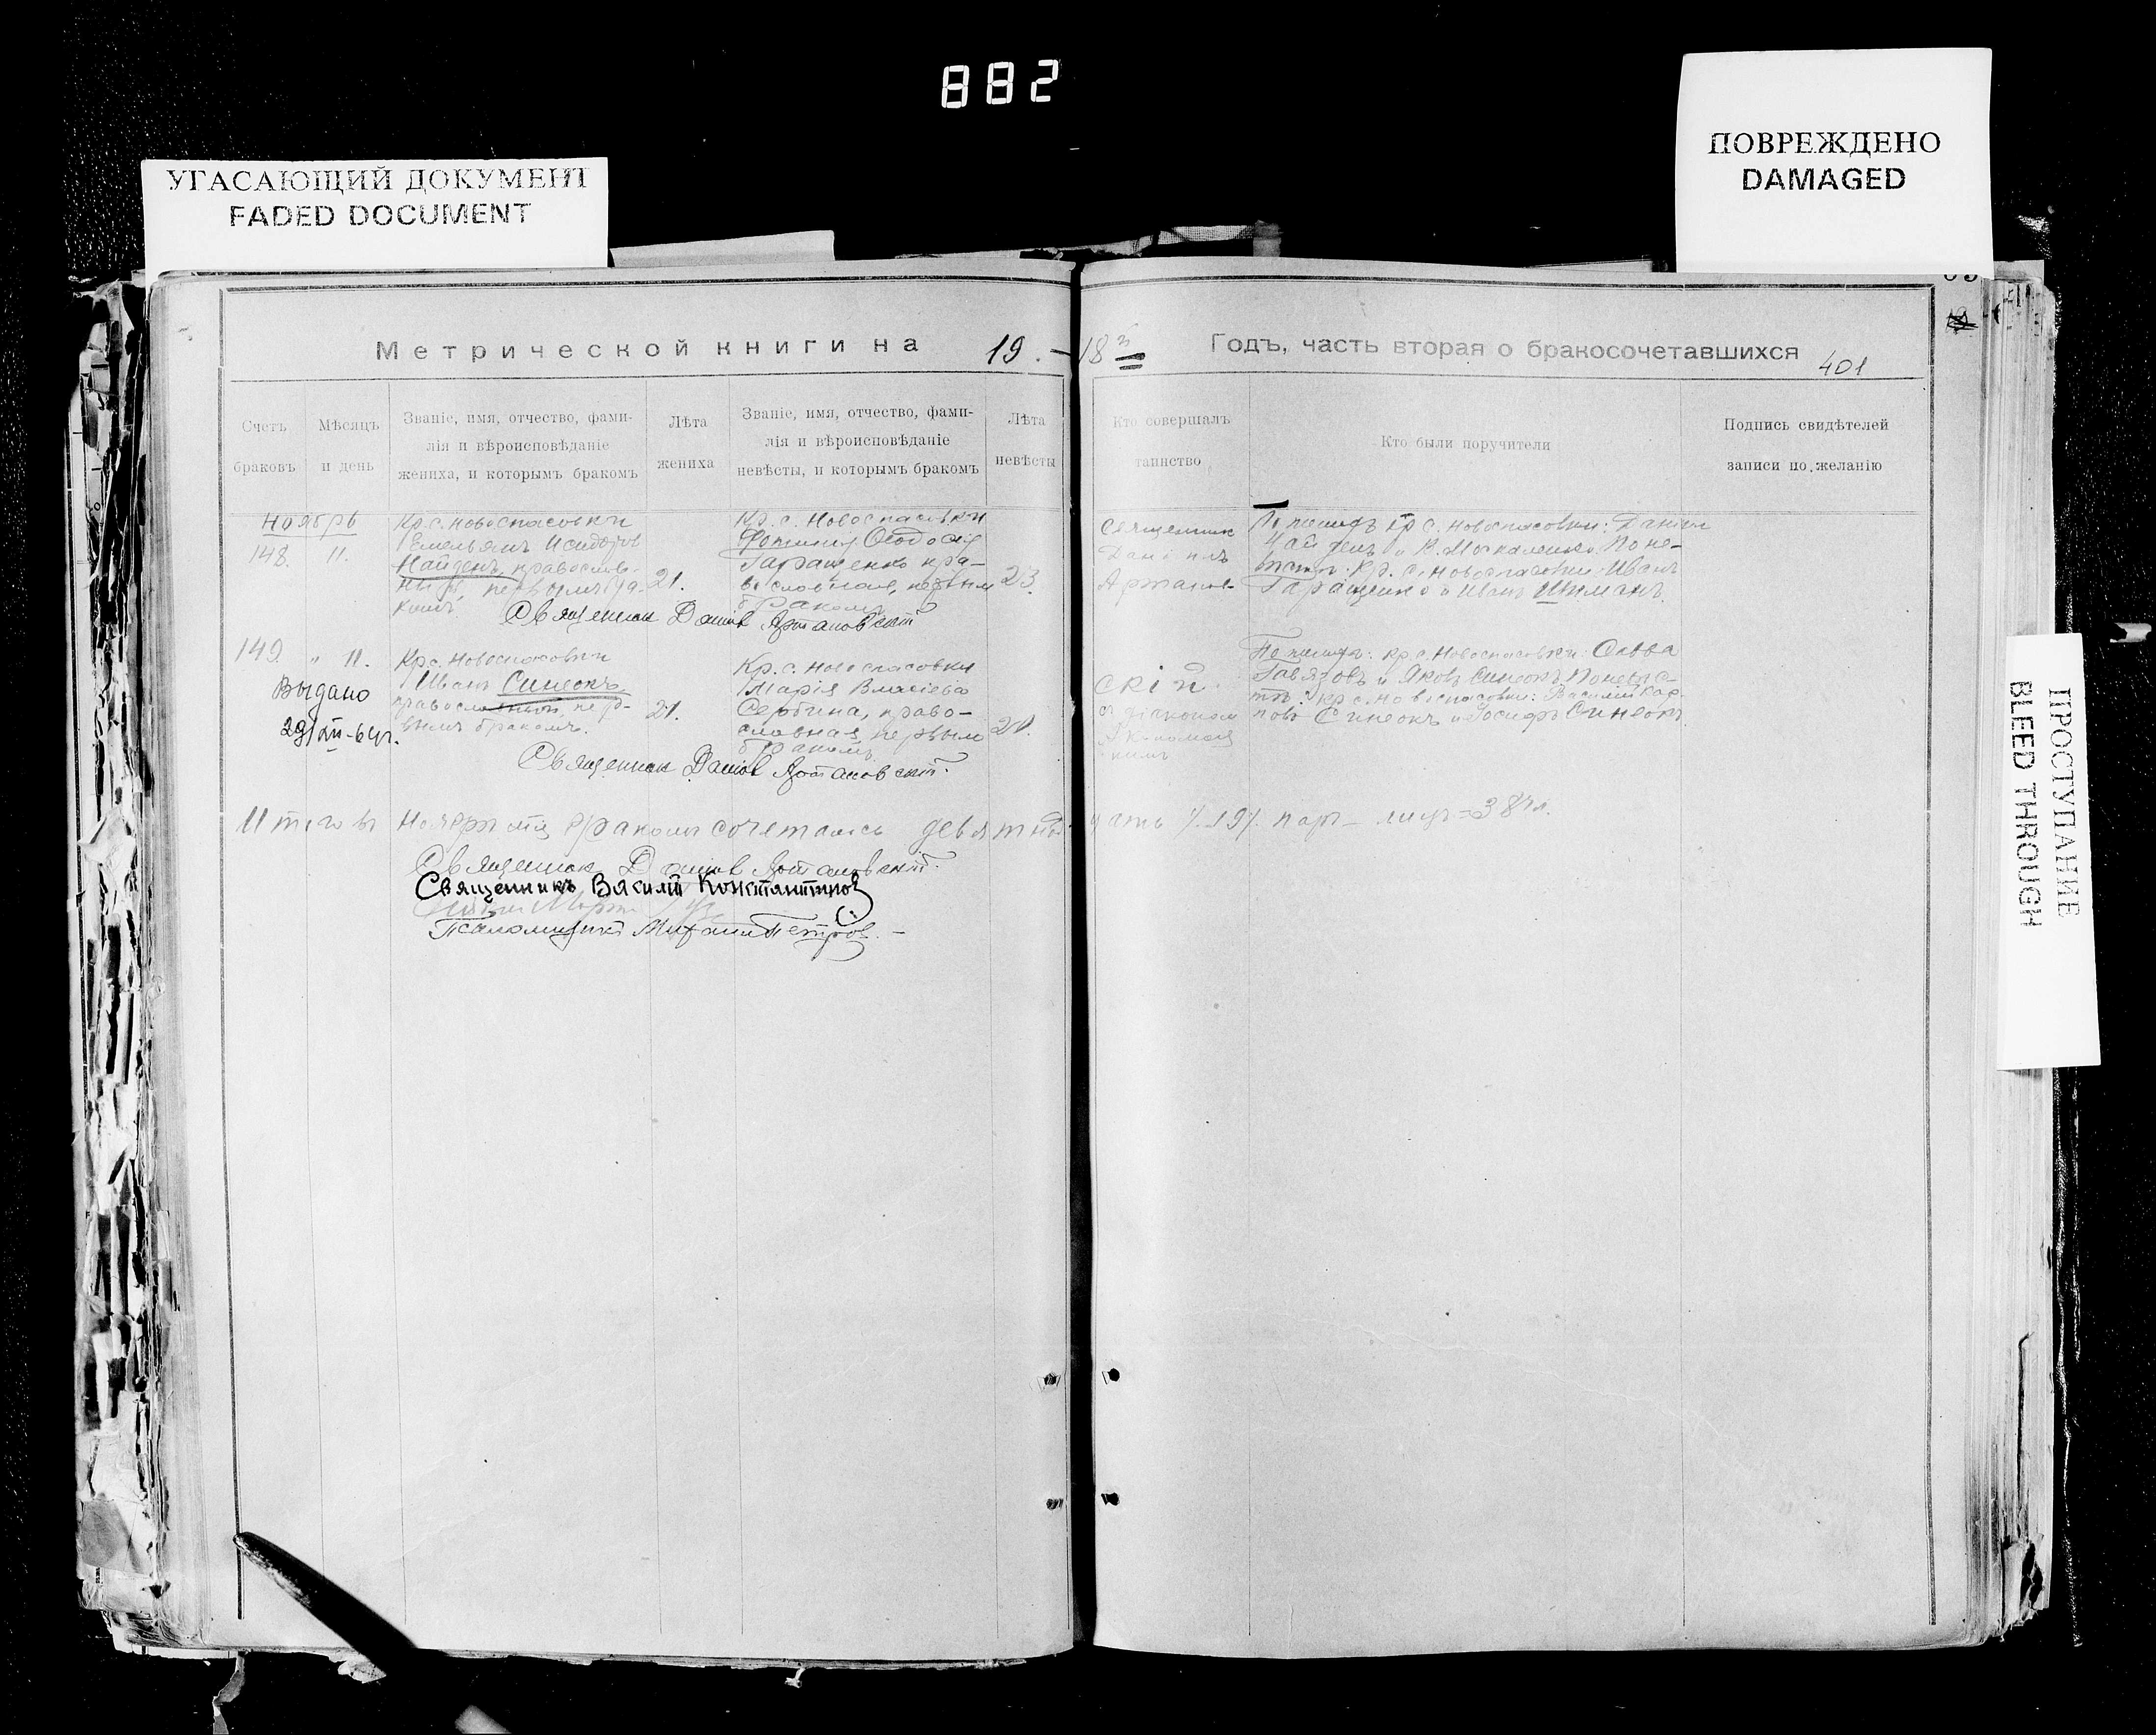 882
УГАСАЮЩИЙ ДОКУМЕНТ
FADED DOCUMENT
ПОВРЕЖДЕНО
DAMAGED
Метрической книги на 19 - 18
Годъ, часть вторая о бракосочетавшихся
401
Счетъ
браковъ
Мѣсяцъ
и день
Званіе, имя, отчество, фами-
лія и вѣроисповѣданіе
жениха, и которымъ бракомъ
Лѣта
жениха
Званіе, имя, отчество, фами-
лія и вѣроисповѣданіе
невѣсты, и которымъ бракомъ
Лѣта
невѣсты
Кто совершалъ
таинство
Кто были поручители
Подпись свидѣтелей
записи по желанію
Ноябрь
148. 11.
Кр. с. Новоспасовки
Емельянъ Исидоров
Найденъ, православ-
ный, первымъ бра-
комъ.
21.
Кр. с. Новоспасовки
Гаращенко пра-
вославная, первым
бракомъ
23.
Священник
Даніилъ
Артанов-
Новоспасовки: Даніил
Найденъ и Москаленко. По не-
вѣстѣ: Кр. с. Новоспасовки: Иванъ
Гаращенко и Иванъ Шиманъ.
Священник Даніил Артановскій
149. " 11.
Выдано
29/XII-64г.
Кр. с. Новоспасовки
Иванъ Синеокъ,
православный, пер-
вымъ бракомъ.
21.
Кр. с. Новоспасовки
Марія Власіева
Сербина, право-
славная, первым
бракомъ.
20.
скій
съ діаконом
Кр. с. Новоспасовки: Савва
и Яковъ Синеокъ. По невѣс-
тѣ: кр. с. Новоспасовки: Василій Кар-
повъ Синеокъ и Іосифъ Синеокъ.
Священник Даніил Артановскій.
Итого въ Ноябрѣ м-цѣ бракомъ сочеталось девятнад-
цать /19/ паръ - лицъ = 38 чл.
Священник Даніил Артановскій.
Священникъ Василій Константиновъ
Псаломщикъ Михаилъ Петров. -
ПРОСТУПАНИЕ
BLEED THROUGH